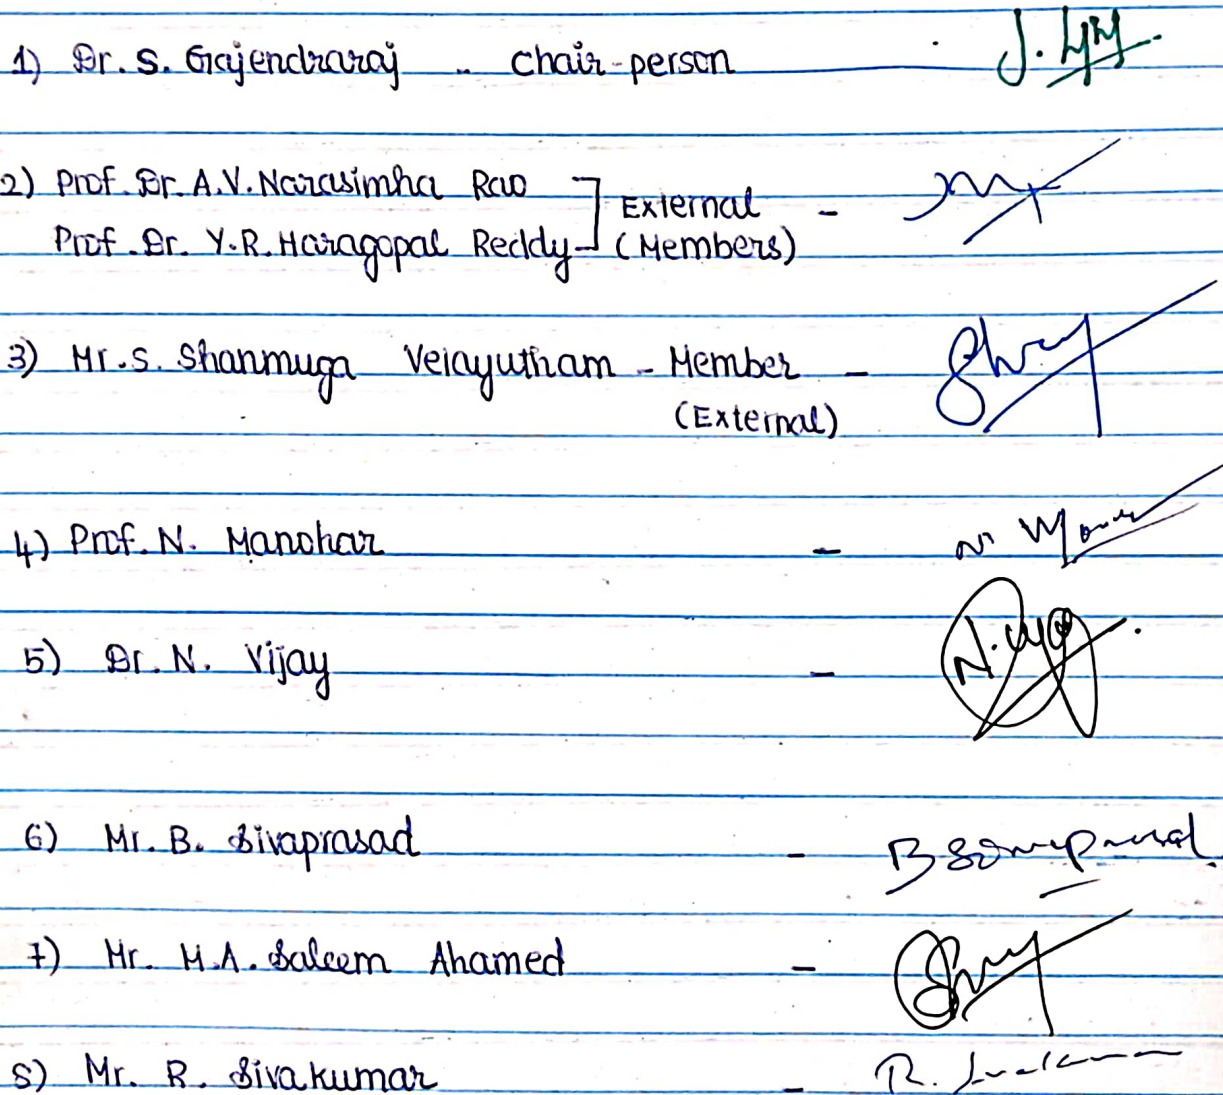 1) Dr. S. Gajendraraj .. chair-person
2) Prof. Dr. A.V. Narasimha Rao
External -
Prof. Dr. Y.R. Haragopal Reddy
(Members)
3) Mr. S. Shanmuga Velayutham - Member -
(External)
4) Prof. N. Manohar -
5) Dr. N. Vijay -
6) Mr. B. Sivaprasad - B Sivaprasad
7) Mr. M.A. Saleem Ahamed -
8) Mr. R. Sivakumar - R. Sivakumar